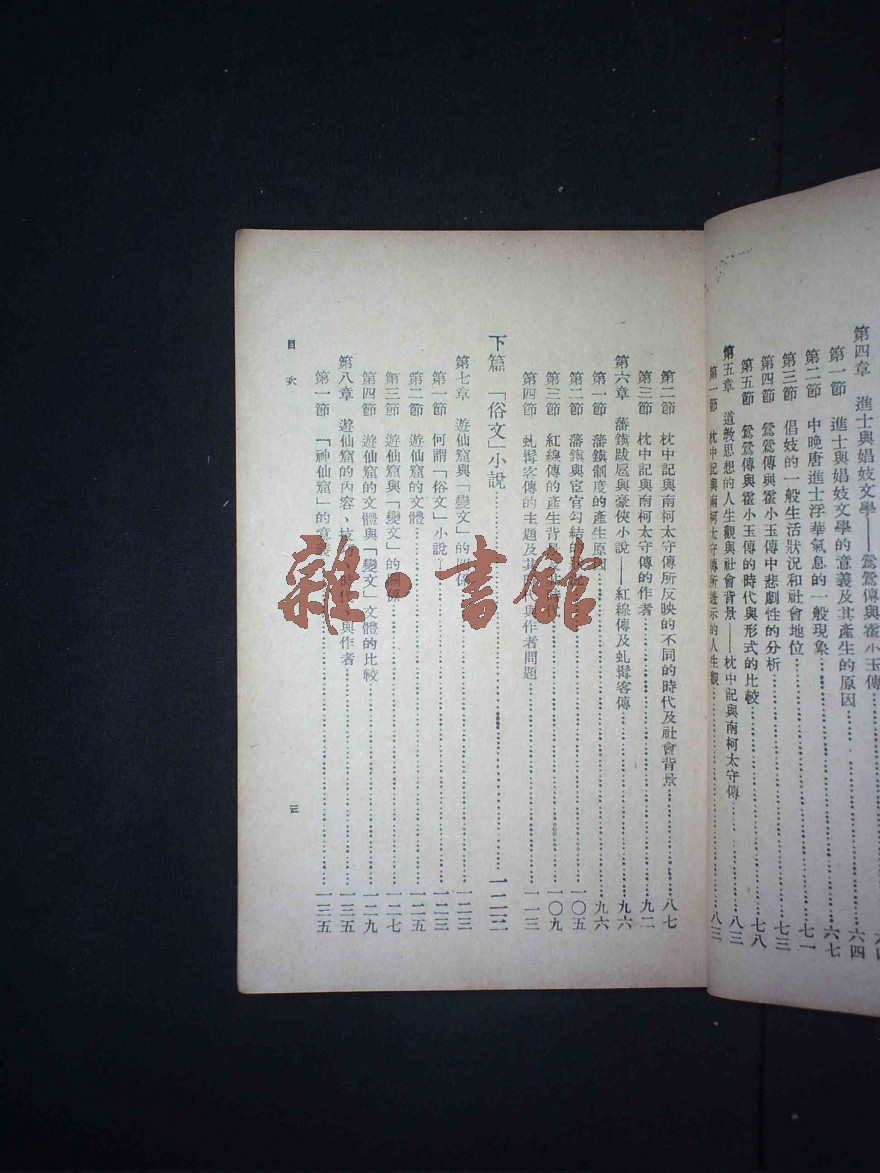 第四章　進士與娼妓文學——鶯鶯傳與霍小玉傳
第一節　進士與娼妓文學的意義及其產生的原因……六四
第二節　中晚唐進士浮華氣息的一般現象……六七
第三節　倡妓的一般生活狀況和社會地位……七一
第四節　鶯鶯傳與霍小玉傳中悲劇性的分析……七三
第五節　鶯鶯傳與霍小玉傳的時代與形式的比較……七八
第五章　道教思想的人生觀與社會背景——枕中記與南柯太守傳……八三
第一節　枕中記與南柯太守傳所透示的人生觀……八三
第二節　枕中記與南柯太守傳所反映的不同的時代及社會背景……八七
第三節　枕中記與南柯太守傳的作者……九二
第六章　藩鎮跋扈與豪俠小說——紅線傳及虬髯客傳……九六
第一節　藩鎮制度的產生原因……九六
第二節　藩鎮與宦官勾結的……一〇五
第三節　紅線傳的產生背景……時代……一〇九
第四節　虬髯客傳的主題及其……與作者問題……一一三
下篇　「俗文」小說……一二二
第七章　遊仙窟與「變文」的關係……一二三
第一節　何謂「俗文」小說……一二三
第二節　遊仙窟的文體……一二五
第三節　遊仙窟與「變文」的關係……一二七
第四節　遊仙窟的文體與「變文」文體的比較……一二九
第八章　遊仙窟的內容、技……與作者……一三五
第一節　「神仙窟」的意義……一三五
目次
三
雜·書館